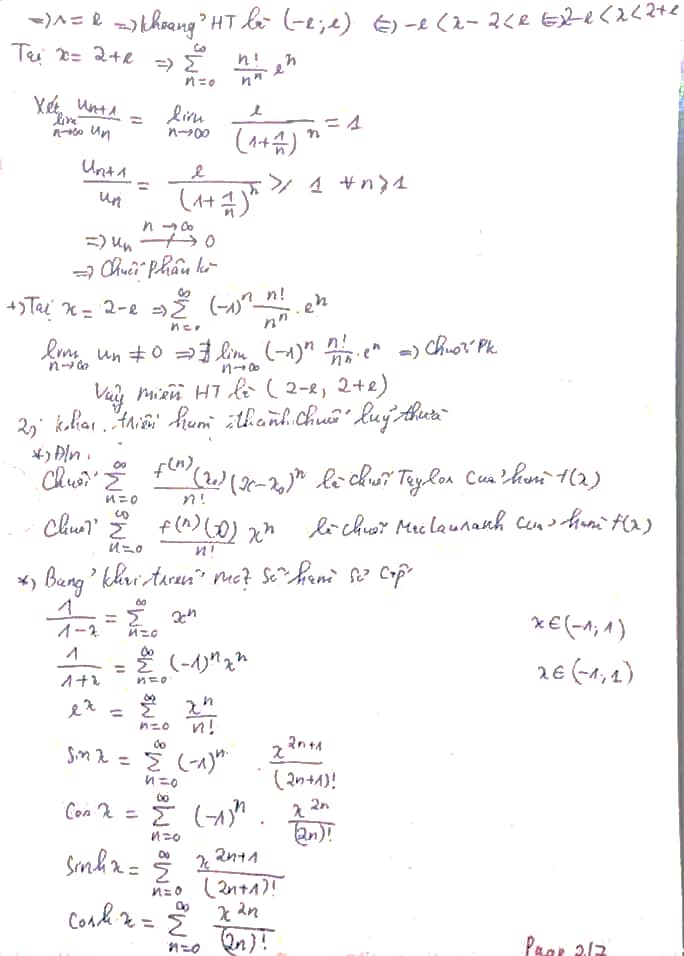 => r = e => Khoảng HT là (-e; e) <=> -e < x - 2 < e <=> 2-e < x < 2+e
Tại x = 2+e => ∑_{n=0}^{∞} n!/n^n e^n
Xét lim_{n→∞} u_{n+1}/u_n = lim_{n→∞} e/(1+1/n)^n = 1
u_{n+1}/u_n = e/(1+1/n)^n ⩾ 1 ∀n⩾1
=> u_n -/-> 0 (n→∞)
=> Chuỗi phân kì
+) Tại x = 2-e => ∑_{n=0}^{∞} (-1)^n n!/n^n . e^n
lim_{n→∞} u_n ≠ 0 => ∄ lim_{n→∞} (-1)^n n!/n^n . e^n => Chuỗi PK
Vậy miền HT là (2-e, 2+e)
2, Khai triển hàm thành chuỗi luỹ thừa
*) Đ/n:
Chuỗi ∑_{n=0}^{∞} f^(n)(x₀)/n! (x-x₀)^n là chuỗi Taylor của hàm f(x)
Chuỗi ∑_{n=0}^{∞} f^(n)(0)/n! x^n là chuỗi của hàm f(x)
*) Bảng khai triển một số hàm sơ cấp
1/(1-x) = ∑_{n=0}^{∞} x^n x∈(-1;1)
1/(1+x) = ∑_{n=0}^{∞} (-1)^n x^n x∈(-1,1)
e^x = ∑_{n=0}^{∞} x^n/n!
Sin x = ∑_{n=0}^{∞} (-1)^n . x^{2n+1}/(2n+1)!
Cos x = ∑_{n=0}^{∞} (-1)^n . x^{2n}/(2n)!
Sinh x = ∑_{n=0}^{∞} x^{2n+1}/(2n+1)!
Cosh x = ∑_{n=0}^{∞} x^{2n}/(2n)!
Page 2/7